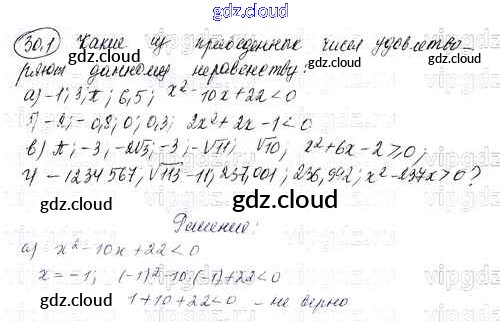 gdz.cloud
30.1 Какие из приведенных чисел удовлетво-
ряют данному неравенству:
а) -1; 3; π; 6,5; x² - 10x + 22 < 0
б) -2; -0,8; 0; 0,3; 2x² + 2x - 1 < 0
в) π; -3; -2√3; -3; -√11; √10; x² + 6x - 2 ≥ 0;
г) -1234567; √113 - 11; 237,001; 236,992; x² - 237x > 0?
gdz.cloud
Решение:
а) x² - 10x + 22 < 0
x = -1; (-1)² - 10·(-1) + 22 < 0
1 + 10 + 22 < 0 - не верно
gdz.cloud